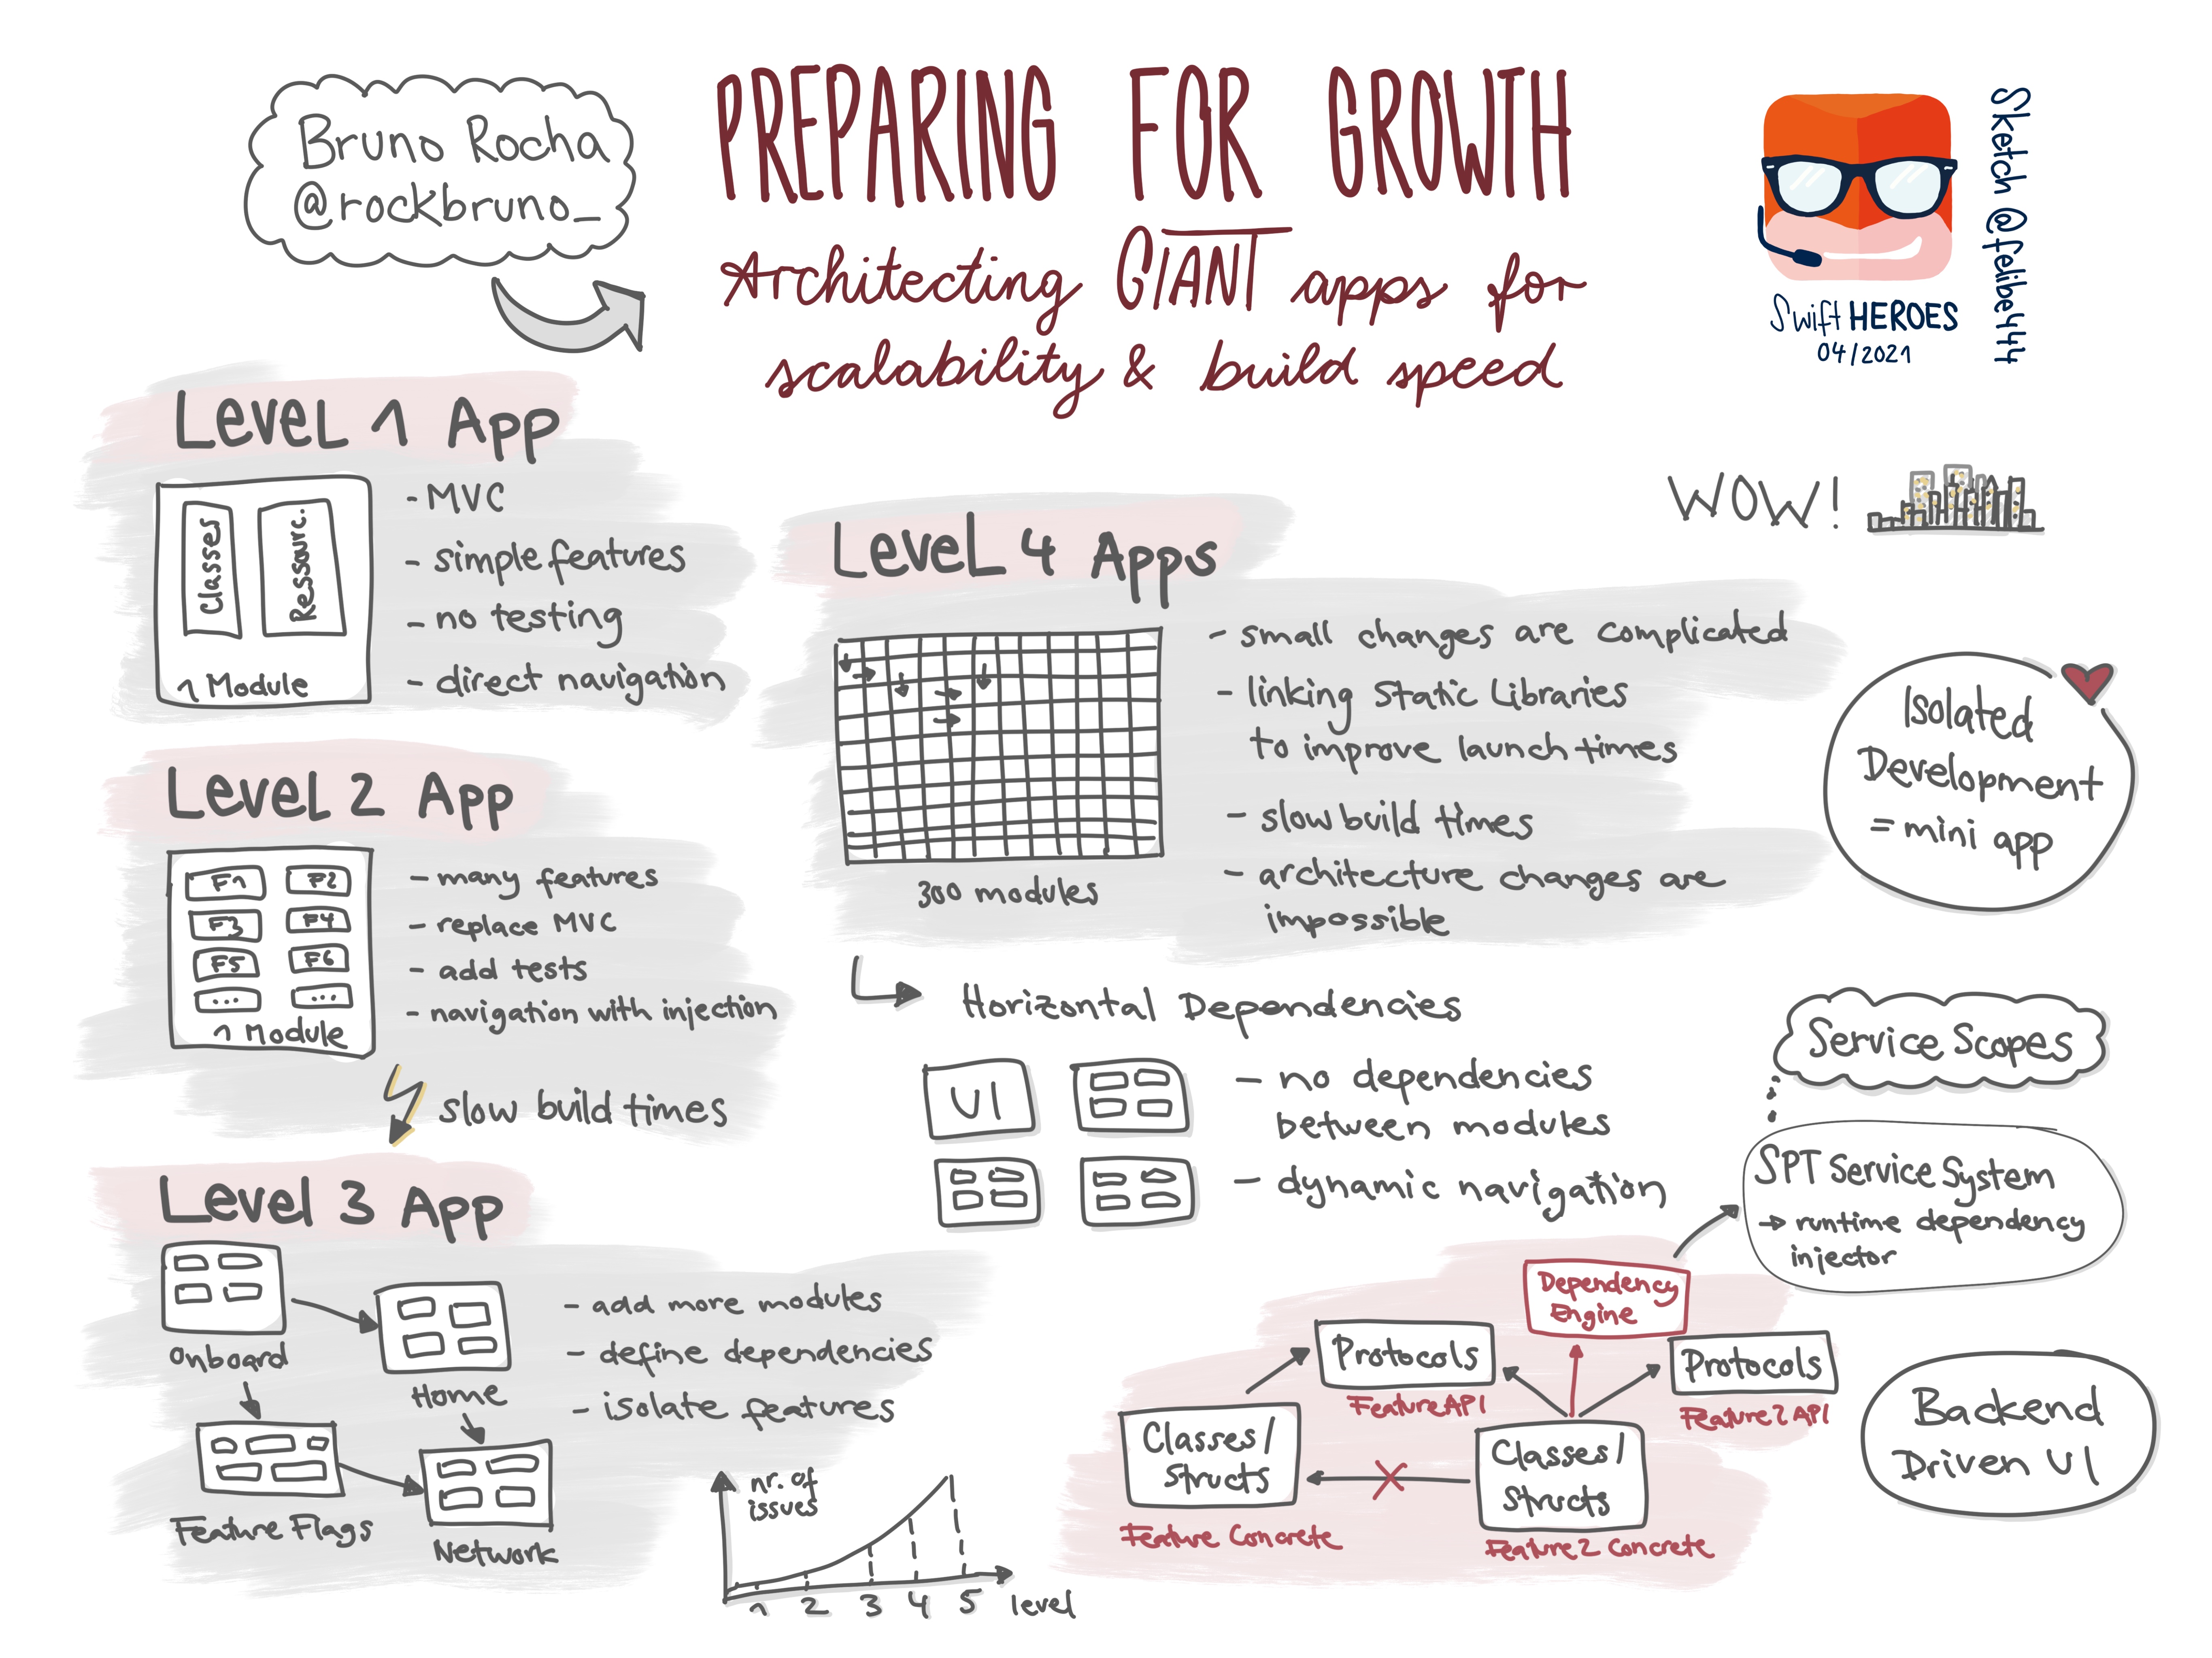 Bruno Rocha
@rockbruno_
PREPARING FOR GROWTH
Architecting GIANT apps for
scalability & build speed
Swift HEROES
04/2021
Sketch @felibe444
Level 1 App
Classes
Ressourc.
1 Module
- MVC
- simple features
- no testing
- direct navigation
Level 2 App
F1
F2
F3
F4
F5
F6
...
...
1 Module
- many features
- replace MVC
- add tests
- navigation with injection
slow build times
Level 3 App
Onboard
Home
Feature Flags
Network
- add more modules
- define dependencies
- isolate features
nr. of
issues
1 2 3 4 5 level
Level 4 Apps
300 modules
- small changes are complicated
- linking Static Libraries
to improve launch times
- slow build times
- architecture changes are
impossible
WOW!
Isolated
Development
= mini app
Horizontal Dependencies
UI
- no dependencies
between modules
- dynamic navigation
Service Scopes
SPT Service System
→ runtime dependency
injector
Dependency
Engine
Protocols
Feature API
Protocols
Feature 2 API
Classes/
Structs
Feature Concrete
Classes/
Structs
Feature 2 Concrete
Backend
Driven UI